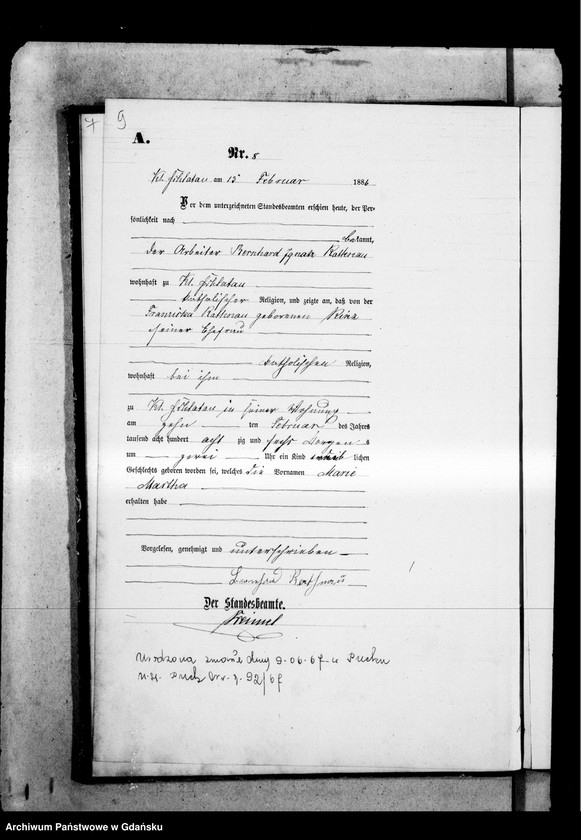 7 9
A.
Nr. 8
Kl. Schlatau am 15 Februar 1886
Vor dem unterzeichneten Standesbeamten erschien heute, der Per-
sönlichkeit nach
bekannt,
der Arbeiter Bernhard Ignatz
wohnhaft zu Kl. Schlatau
katholischer Religion, und zeigte an, daß von der
geborenen
seiner Ehefrau
katholischen Religion,
wohnhaft bei ihm
zu Kl. Schlatau in seiner Wohnung
am zehn ten Februar des Jahres
tausend acht hundert acht zig und sechs Morgens
um zwei Uhr ein Kind weib lichen
Geschlechts geboren worden sei, welches die Vornamen Marie
Martha
erhalten habe
Vorgelesen, genehmigt und unterschrieben
Der Standesbeamte.
Urodzona zmarła dnia 9.06.67 w Pucku
Puck Nr. 92/67
Archiwum Państwowe w Gdańsku